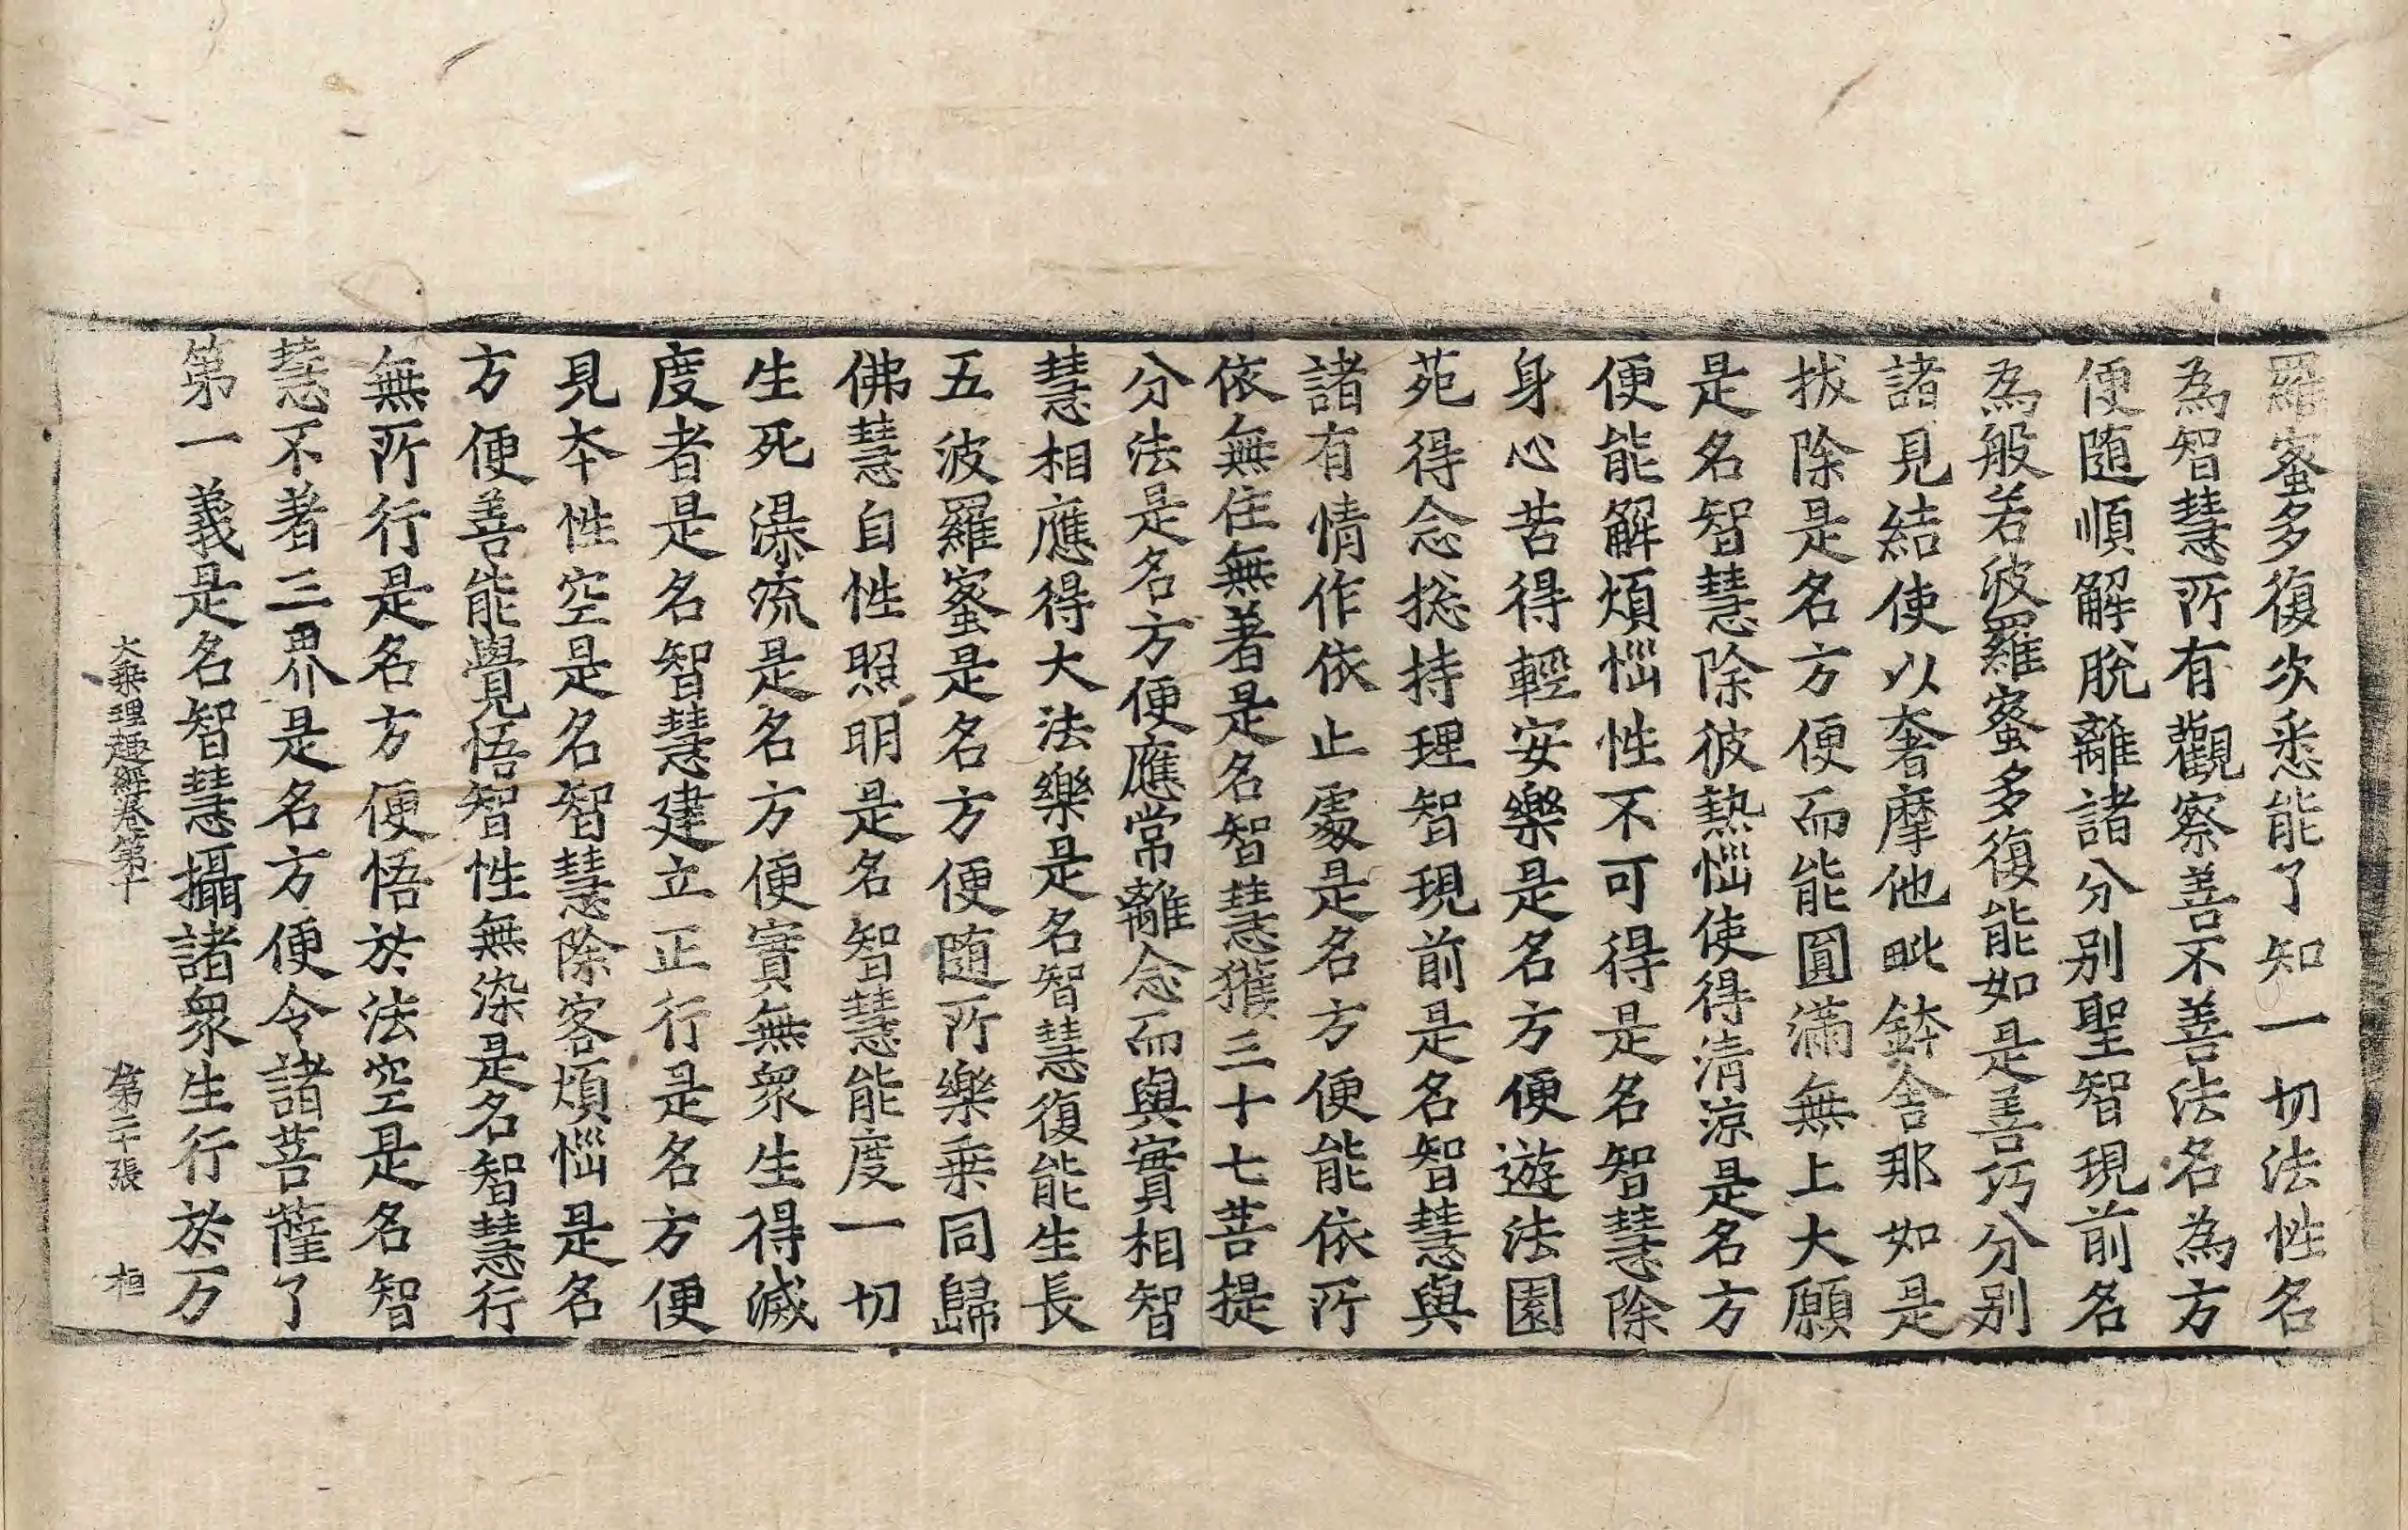 羅蜜多復次悉能了知一切法性名
為智慧所有觀察善不善法名為方
便随順解脫離諸分别聖智現前名
為般若波羅蜜多復能如是善巧分别
諸見結使以奢摩他毗鉢舍那如是
拔除是名方便而能圓滿無上大願
是名智慧除彼熱惱使得清涼是名方
便能解煩惱性不可得是名智慧除
身心苦得輕安樂是名方便遊法園
苑得念捴持理智現前是名智慧與
諸有情作依止處是名方便能依所
依無住無著是名智慧獲三十七菩提
分法是名方便應常離念而與實相智
慧相應得大法樂是名智慧復能生長
五波羅蜜是名方便随所樂乗同歸
佛慧自性照明是名智慧能度一切
生死瀑流是名方便實無衆生得滅
度者是名智慧建立正行是名方便
見本性空是名智慧除客煩惱是名
方便善能覺悟智性無染是名智慧行
無所行是名方便悟於法空是名智
慧不著三界是名方便令諸菩薩了
第一義是名智慧攝諸衆生行於万
大乗理趣經卷第十 第二十張 桓